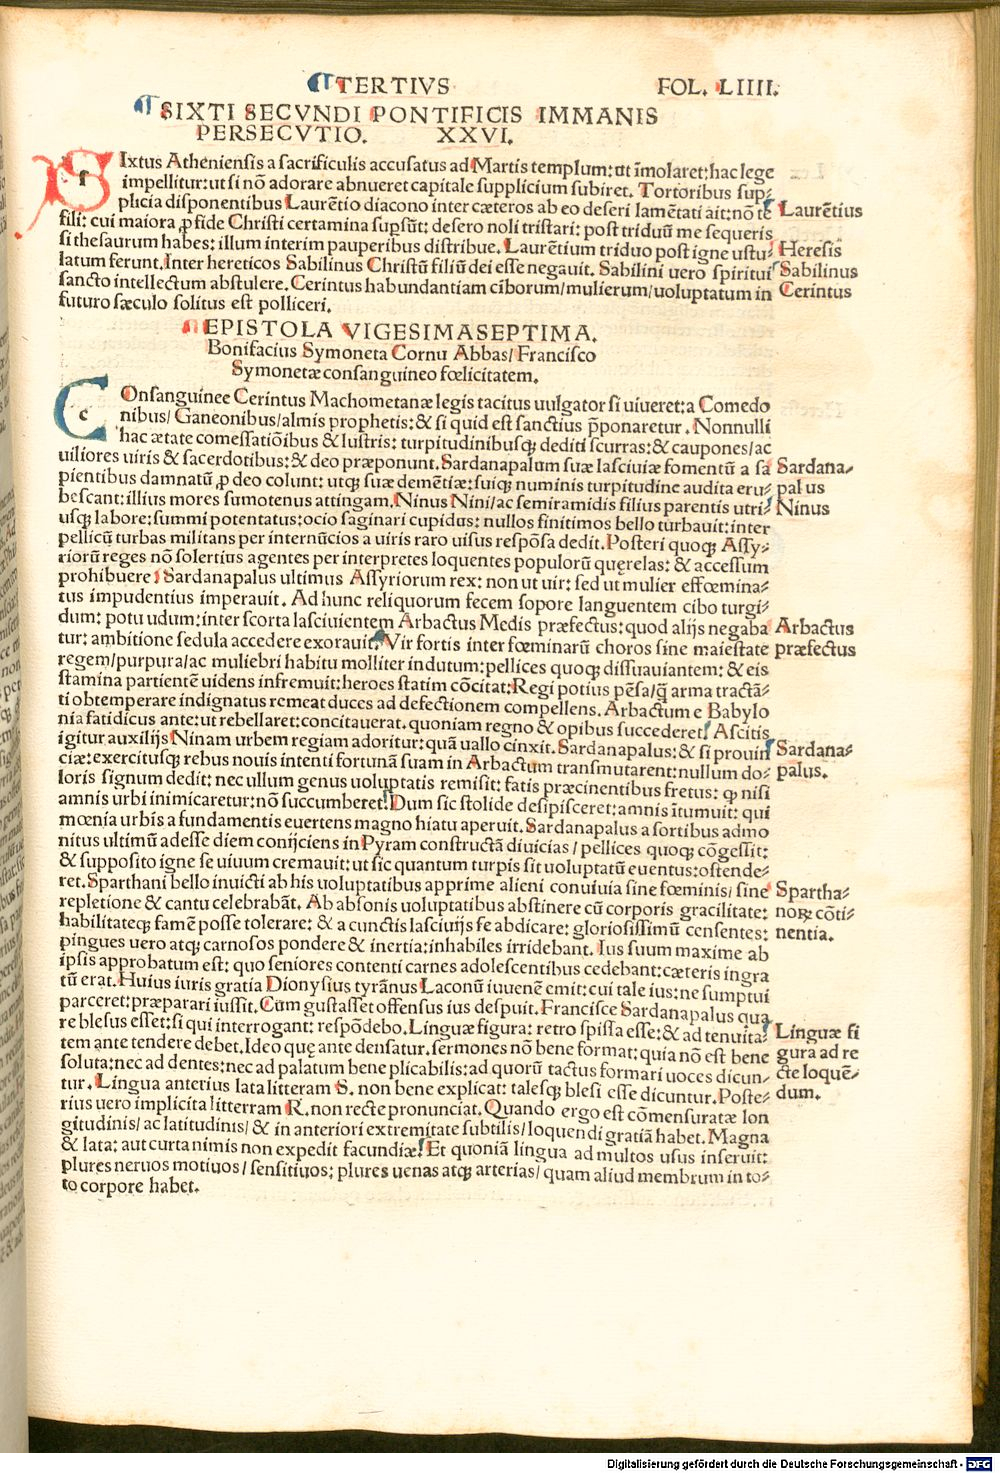 TERTIVS FOL. LIIII.
SIXTI SECVNDI PONTIFICIS IMMANIS
PERSECVTIO. XXVI.
SIxtus Atheniensis a sacrificulis accusatus ad Martis templum: ut īmolaret: hac lege
impellitur: ut si nõ adorare abnueret capitale supplicium subiret. Tortoribus sup⸗
plicia disponentibus Laurẽtio diacono inter cæteros ab eo deseri lamẽtati ait: nõ te
fili: cui maiora ꝓ fide Christi certamina supsũt: desero noli tristari: post triduũ me sequeris
si thesaurum habes: illum interim pauperibus distribue. Laurẽtium triduo post igne ustu⸗
latum ferunt. Inter hereticos Sabilinus Christũ filiũ dei esse negauit. Sabilini uero spiritui
sancto intellectum abstulere. Cerintus habundantiam ciborum/ mulierum/ uoluptatum in
futuro sæculo solitus est polliceri.
Laurẽtius
Heresis
Sabilinus
Cerintus
EPISTOLA VIGESIMASEPTIMA.
Bonifacius Symoneta Cornu Abbas/ Francisco
Symonetæ consanguineo fœlicitatem.
COnsanguinee Cerintus Machometanæ legis tacitus uulgator si uiueret: a Comedo
nibus/ Ganeonibus/ almis prophetis: & si quid est sanctius p̄ponaretur. Nonnulli
hac ætate comessatiõibus & lustris: turpitudinibusqꝫ dediti scurras: & caupones/ ac
uiliores uiris & sacerdotibus: & deo præponunt. Sardanapalum suæ lasciuiæ fomentũ a sa
pientibus damnatũ ꝓ deo colunt: utqꝫ suæ demẽtiæ: suiqꝫ numinis turpitudine audita eru⸗
bescant: illius mores sumotenus attingam. Ninus Nini/ ac semiramidis filius parentis utri⸗
usqꝫ labore: summi potentatus: ocio saginari cupidus: nullos finitimos bello turbauit: inter
pellicũ turbas militans per internũcios a uiris raro uisus respõsa dedit. Posteri quoqꝫ Assy⸗
riorũ reges nõ solertius agentes per interpretes loquentes populorũ quęrelas: & accessum
prohibuere. Sardanapalus ultimus Assyriorum rex: non ut uir: sed ut mulier effœmina⸗
tus impudentius imperauit. Ad hunc reliquorum fecem sopore languentem cibo turgi⸗
dum: potu udum: inter scorta lasciuientem Arbactus Medis præfectus: quod alijs negaba
tur: ambitione sedula accedere exorauit. Vir fortis inter fœminarũ choros sine maiestate
regem/ purpura/ ac muliebri habitu molliter indutum: pellices quoqꝫ dissuauiantem: & eis
stamina partientẽ uidens infremuit: heroes statim cõcitat: Regi potius pẽsa/ q̃ arma tractã⸗
ti obtemperare indignatus remeat duces ad defectionem compellens. Arbactum e Babylo
nia fatidicus ante: ut rebellaret: concitauerat. quoniam regno & opibus succederet. Ascitis
igitur auxilijs Ninam urbem regiam adoritur: quã uallo cinxit. Sardanapalus: & si prouin⸗
ciæ: exercitusqꝫ rebus nouis intenti fortunã suam in Arbactum transmutarent: nullum do⸗
loris signum dedit: nec ullum genus uoluptatis remisit: fatis præcinentibus fretus: ꝙ nisi
amnis urbi inimicaretur: nõ succumberet. Dum sic stolide desipisceret: amnis ītumuit: qui
mœnia urbis a fundamentis euertens magno hiatu aperuit. Sardanapalus a sortibus admo
nitus ultimũ adesse diem conijciens in Pyram constructã diuicias/ pellices quoqꝫ cõgessit:
& supposito igne se uiuum cremauit: ut sic quantum turpis sit uoluptatũ euentus: ostende⸗
ret. Sparthani bello inuicti ab his uoluptatibus apprime alieni conuiuia sine fœminis/ sine
repletione & cantu celebrabãt. Ab absonis uoluptatibus abstinere cũ corporis gracilitate:
habilitateqꝫ famẽ posse tolerare: & a cunctis lasciuijs se abdicare: gloriosissimũ censentes:
pingues uero atqꝫ carnosos pondere & inertia: inhabiles irridebant. Ius suum maxime ab
ipsis approbatum est: quo seniores contenti carnes adolescentibus cedebant: cæteris ingra
tũ erat. Huius iuris gratia Dionysius tyrãnus Laconũ iuuenẽ emit: cui tale ius: ne sumptui
parceret: præparari iussit. Cum gustasset offensus ius despuit. Francisce Sardanapalus qua
re blesus esset: si qui interrogant: respõdebo. Linguæ figura: retro spissa esse: & ad tenuita⸗
tem ante tendere debet. Ideo quę ante densatur. sermones nõ bene format: quia nõ est bene
soluta: nec ad dentes: nec ad palatum bene plicabilis: ad quorũ tactus formari uoces dicun⸗
tur. Lingua anterius lata litteram S. non bene explicat: talesqꝫ blesi esse dicuntur. Poste⸗
rius uero implicita litterram R. non recte pronunciat. Quando ergo est cõmensuratæ lon
gitudinis/ ac latitudinis/ & in anteriori extremitate subtilis/ loquendi gratiã habet. Magna
& lata: aut curta nimis non expedit facundiæ. Et quoniã lingua ad multos usus inseruit:
plures neruos motiuos/ sensitiuos: plures uenas atqꝫ arterias/ quam aliud membrum in to⸗
to corpore habet.
Sardana⸗
palus
Ninus
Arbactus
præfectus
Sardana⸗
palus.
Spartha⸗
noꝝ cõti⸗
nentia.
Linguæ fi
gura ad re
cte loquẽ⸗
dum.
Digitalisierung gefördert durch die Deutsche Forschungsgemeinschaft - DFG